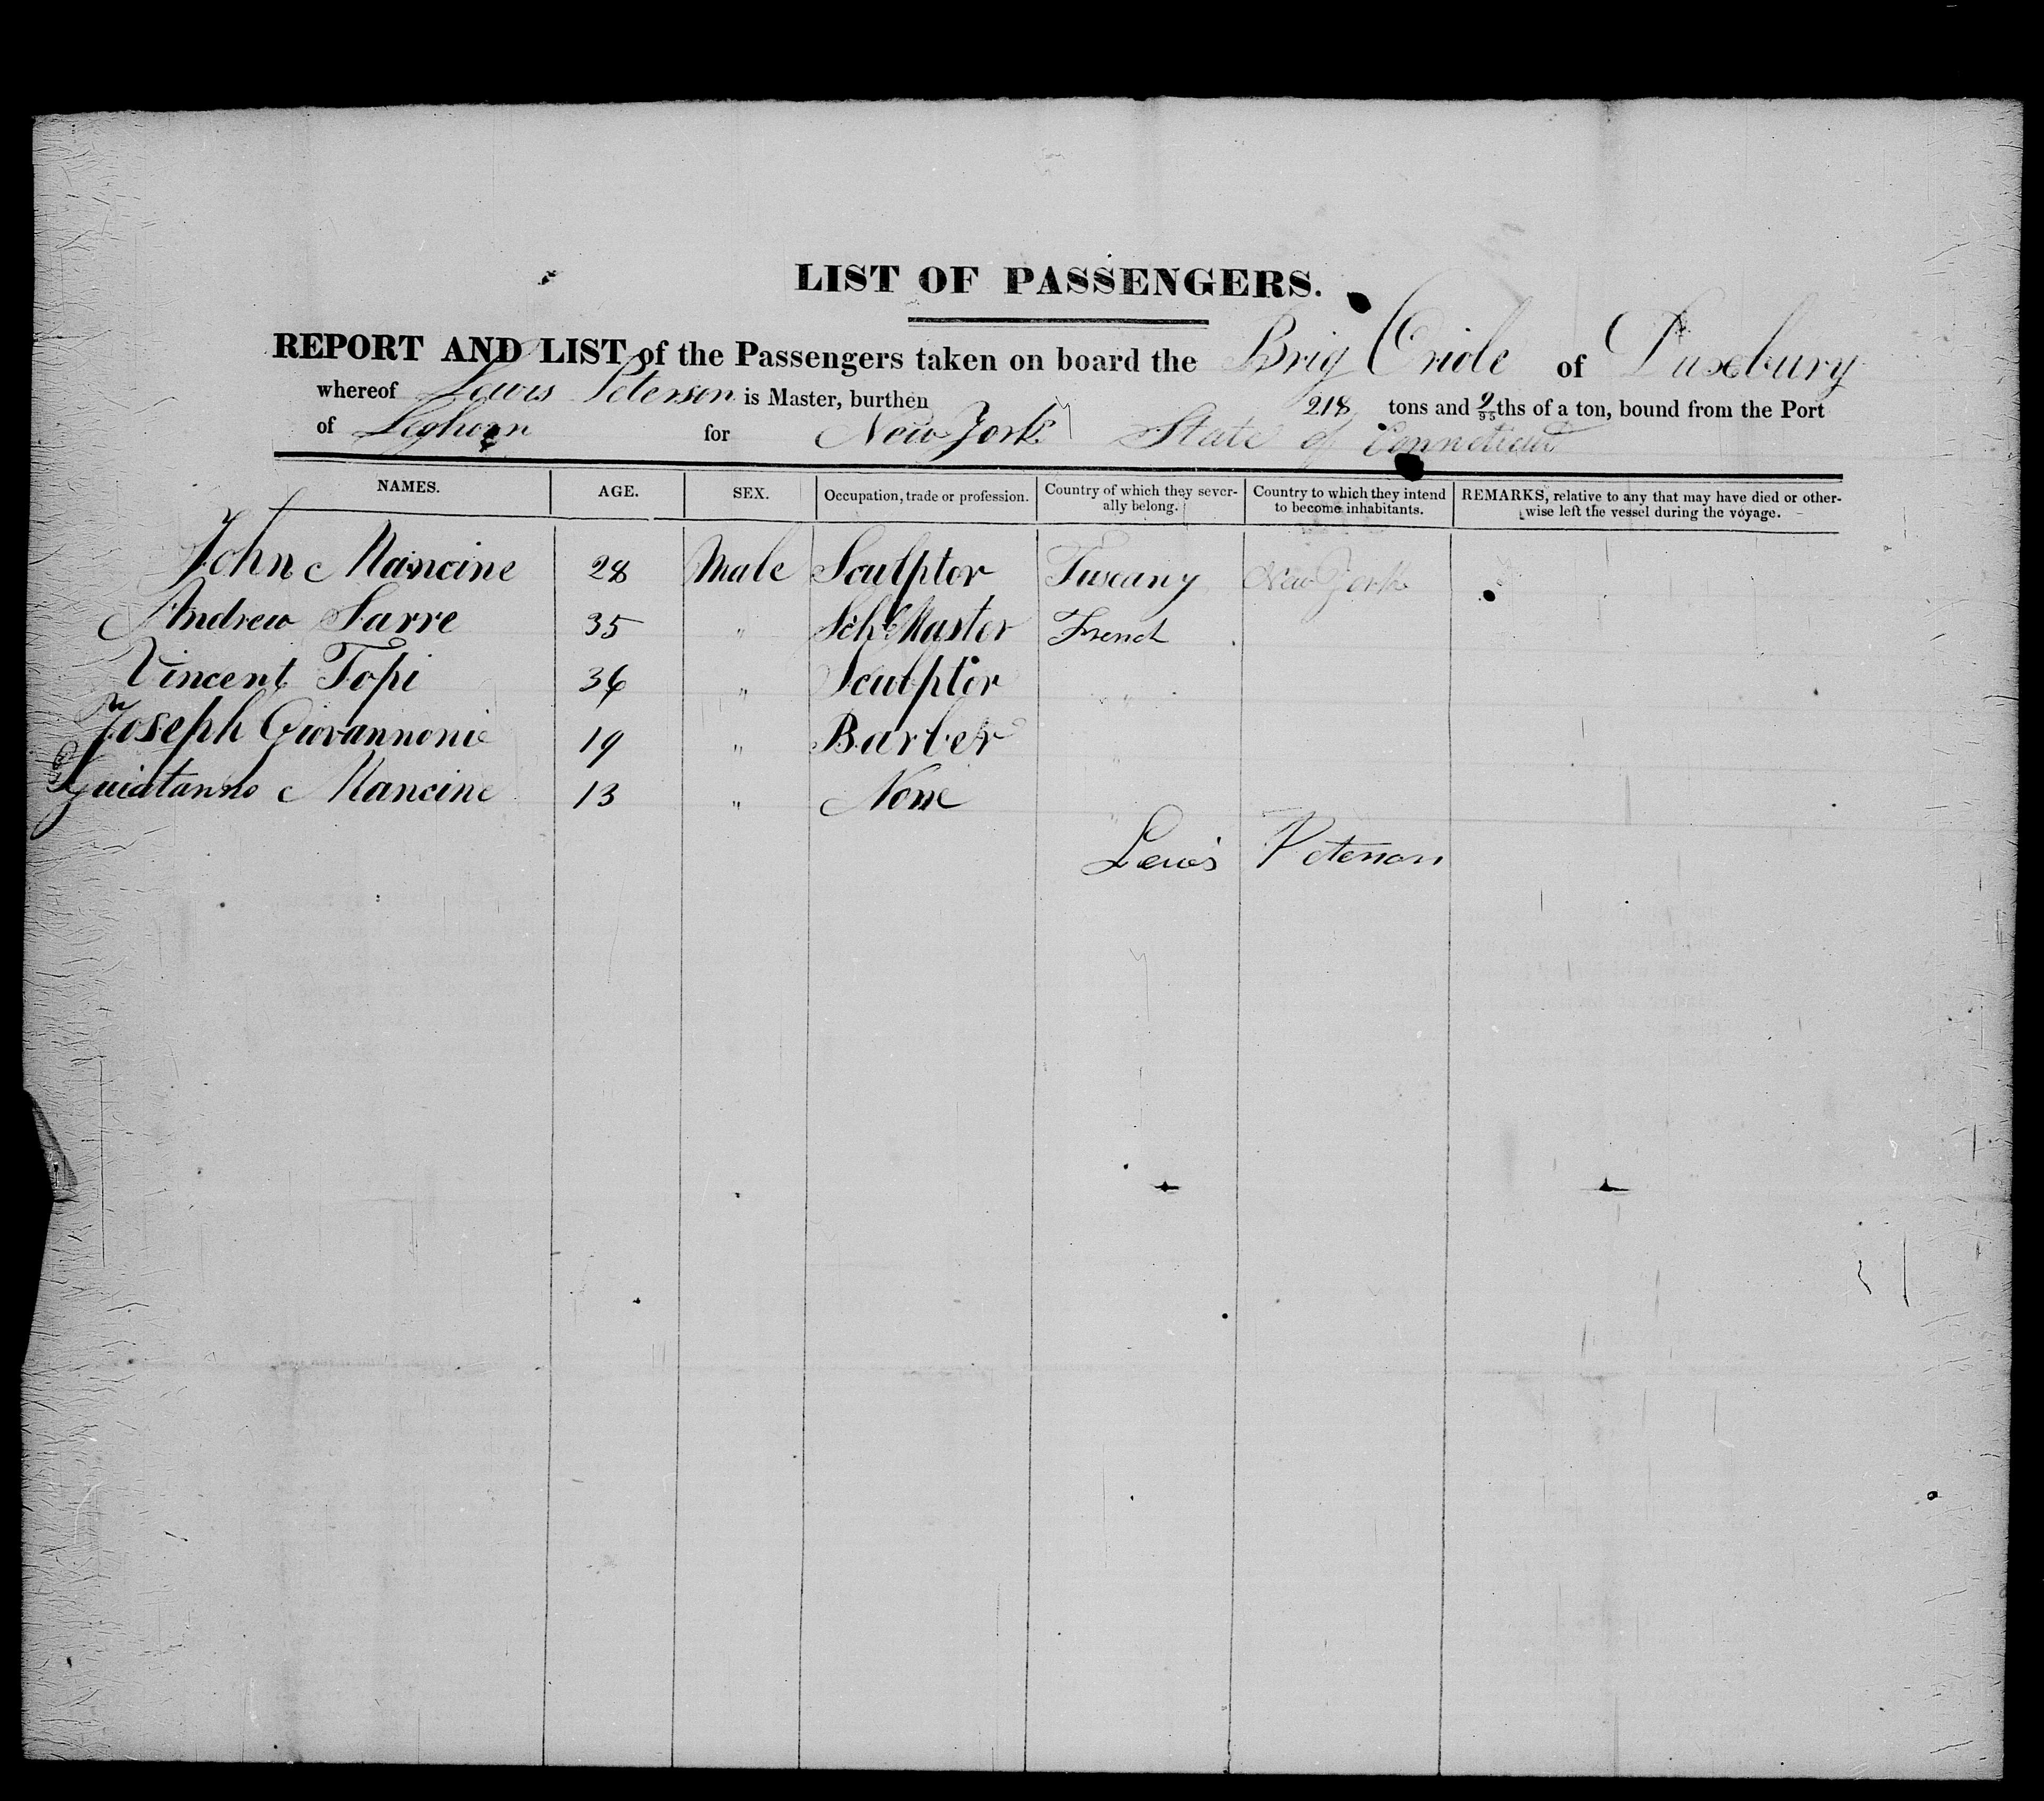 LIST OF PASSENGERS.
REPORT AND LIST of the Passengers taken on board the Brig Oriole of Duxbury
whereof Lewis Peterson is Master, burthen 218 tons and 9/95ths of a ton, bound from the Port
of Leghorn for New York State of Conneticut
NAMES. AGE. SEX. Occupation, trade or profession. Country of which they severally belong. Country to which they intend to become inhabitants. REMARKS, relative to any that may have died or otherwise left the vessel during the voyage.
John Mancine 28 Male Sculptor Tuscany New York
Andrew Sarre 35 " Sch Master French
Vincent Topi 36 " Sculptor "
Joseph Giovannonie 19 " Barber "
Mancine 13 " None "
Lewis Peterson